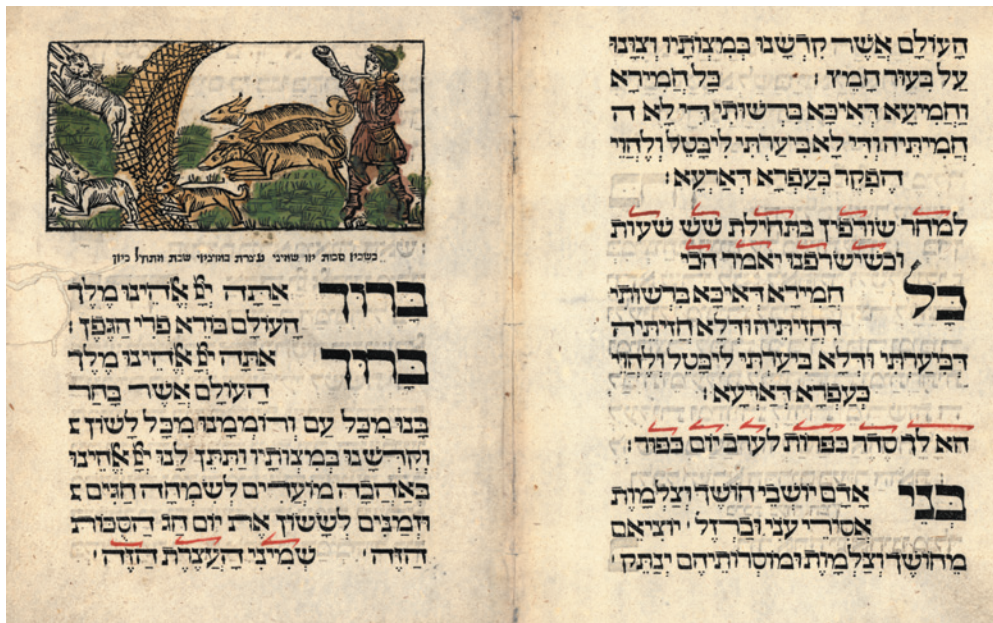 העולם אשר קדשנו במצותיו וצונו
על בעור חמיץ : כל חמירא
וחמיעא דאיכא ברשותי די לא ה
חמיתיה ודי לא ביערתי ליבטל ולהוי
הפקר כעפרא דארעא :
למחר שורפין בתחילת שש שעות
וכשישרפנו יאמר הכי
כל חמירא דאיכא ברשותי
דחזיתיה ודלא חזיתיה
דבערתי ודלא ביערתי ליבטל ולהוי
כעפרא דארעא :
הא לך סדר כפרות לערב יום כפור :
בני אדם יושבי חושך וצלמות
אסורי עני וברזל יוציאם
מחושך וצלמות ומוסרותיהם ינתק
סכות שמיני עצרת שבת
ברוך אתה יי אלהינו מלך
העולם בורא פרי הגפן :
ברוך אתה יי אלהינו מלך
העולם אשר בחר
בנו מכל עם ורוממנו מכל לשון
וקדשנו במצותיו ותתן לנו יי אלהינו
באהבה מועדים לשמחה חגים
וזמנים לששון את יום חג הסכות
הזה שמיני העצרת הזה